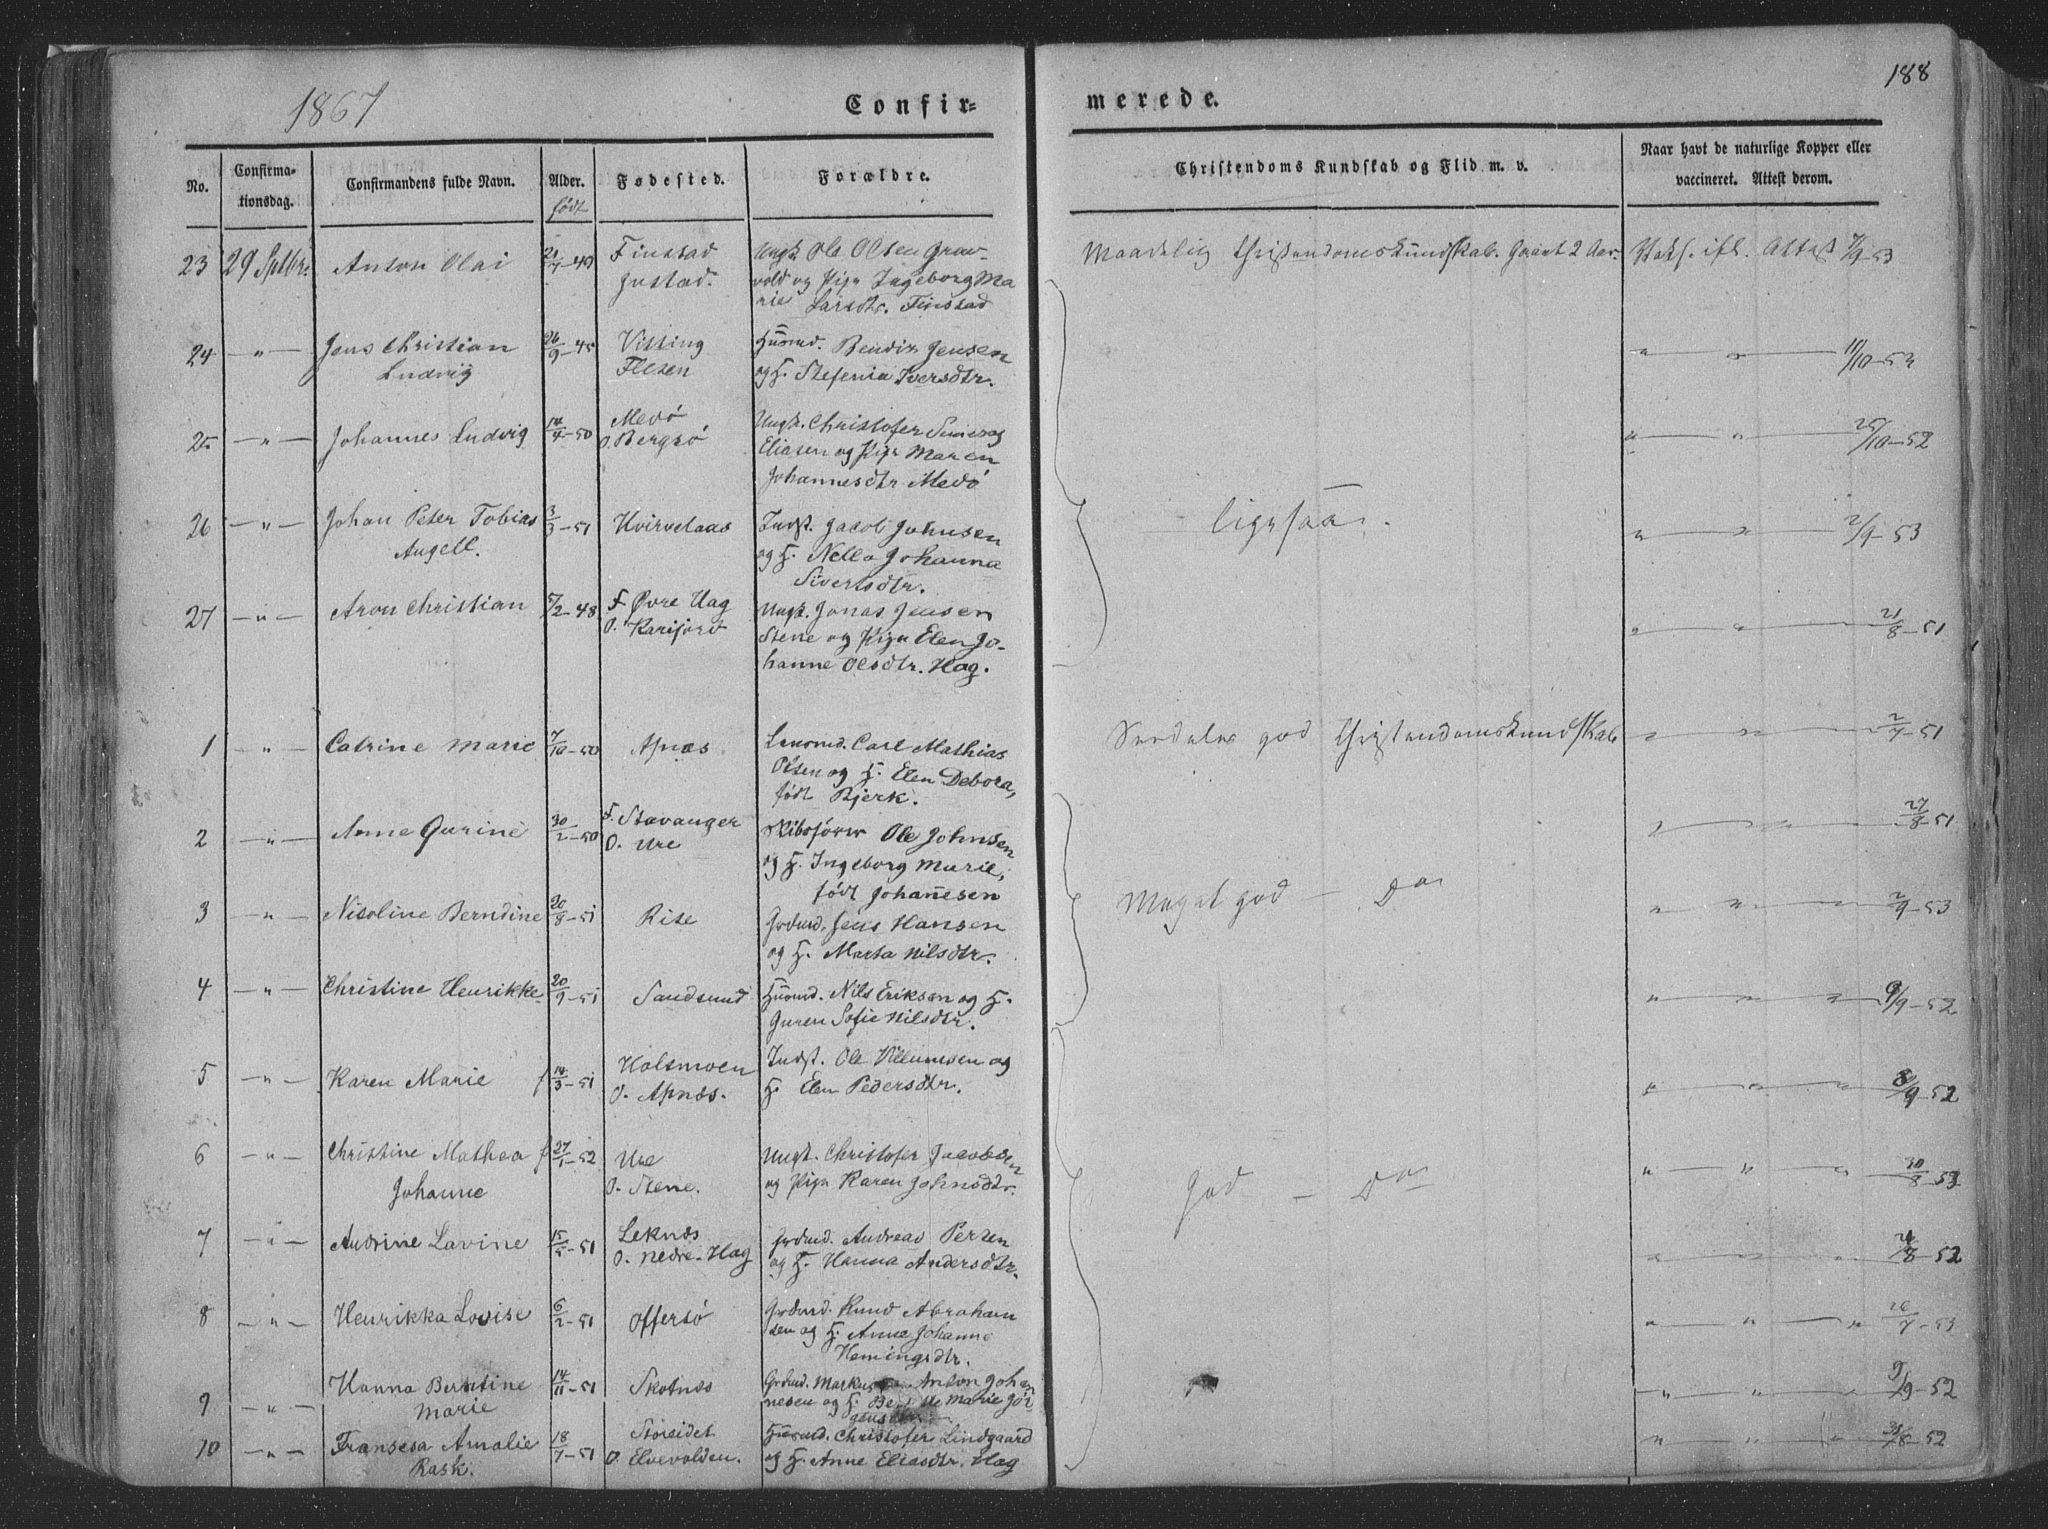 1867
Confir-
merede.
188
No.
Confirma-
tionsdag.
Confirmandens fulde Navn.
Alder.
født
Fødested.
Forældre.
Christendoms Kundskab og Flid m. v.
Naar havt de naturlige Kopper eller
vaccineret. Attest derom.
23 29 Sptbr. Anton Olai 21/7-49 Finstad Ungk. Ole Olsen Grav- Maadelig Christendomskundskab. 2 Aar. Vaks. ifl. Attest 7/9-53
Justad. vold og Pige Ingeborg Ma
rie Larsdtr. Finstad
24 -"- Jens Christian 26/9-45 Visting Husmd. Bendix Jensen " " 11/10-53
Ludvig Flesen og H. Stefenia Iversdtr.
25 -"- Johannes Ludvig 14/4-50 Medø Ungk. Christofer " " 25/10-52
O. Bergsø Eliasen og Pige Maren
Johannesdtr Medø
26 -"- Johan Peter Tobias 3/3-51 Hvirvelaas Indst. Jacob Johnsen Ligesaa. " " 2/9-53
Angell. og H. Nella Johanna
Sivertsdtr.
27 -"- Aron Christian 5/2-48 F. Øvre Hag Ungk. Jonas Jensen " " 21/8-51
O. Karifjord Stene og Pige Elen Jo-
hanne Olsdtr. Hag.
1 -"- Catrine Marie 7/10-50 Apnæs Lensmd. Carl Mathias Særdeles god Christendomskundskab " " 2/7-51
Olsen og H. Elen Debora,
født Bjerk.
2 -"- Anne Gurine 30/2-50 F. Stavanger Skibsfører Ole Johnsen " " 27/8-51
O. Ure og H. Ingeborg Marie,
født Johannesen
3 -"- Nicoline Berndine 20/8-51 Rise Grdmd. Jens Hansen Meget god - Do " " 2/9-53
og H. Marta Nilsdtr.
4 -"- Christine Henrikke 20/9-51 Sandsund Husmd. Nils Eriksen og H. " " 9/9-52
Guren Sofie Nilsdtr.
5 -"- Karen Marie f 14/3-51 Holsmoen Indst. Ole Villumsen og " " 8/9-52
O. Apnæs. H. Elen Pedersdtr.
6 -"- Christine Mathea f 27/1-52 Ure Ungk. Christofer Jacobsen God - Do " " 30/8-53
Johanne O. Stene. og Pige Karen Johnsdtr.
7 -"- Andrine Lavine 15/5-51 Leknæs Grdmd. Andreas Persen " " /8-52
O. Nedre-Hag og H. Hanna Andersdtr.
8 -"- Henrikka Lovise 6/2-51 Offersø Grdmd. Knud Abraham " " 26/7-53
sen og H. Anne Johanne
Hemingsdtr.
9 -"- Hanna Berntine 14/11-51 Skotnæs Grdmd. Markus Anton Johan " " 9/9-52
Marie nesen og H. Marie Jør-
gensdtr
10 -"- Fransesa Amalie 18/7-51 Støreidet Husmd. Christofer Lindgaard " " /8-52
Rask. O. Elvevolden. og H. Anne Eliasdtr. Hag